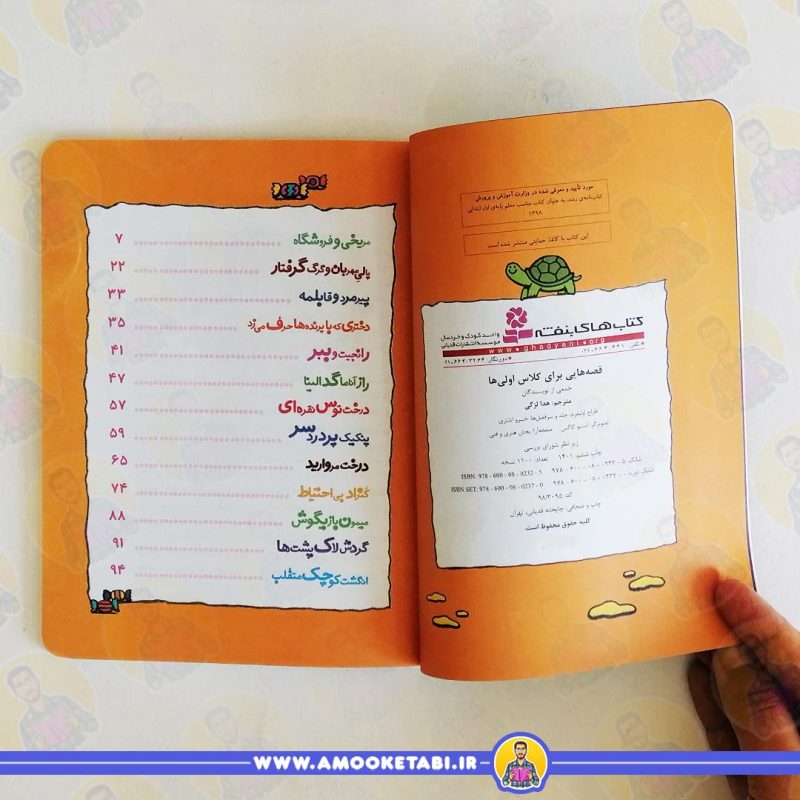 مورد تأیید و معرفی شده در وزارت آموزش و پرورش
کتابنامه‌ی رشد، به عنوان کتاب مناسب معلم پایه‌ی اول ابتدایی
۱۳۹۸
این کتاب با کاغذ حمایتی منتشر شده است
کتاب‌های بنفشه
واحد کودک و خردسال
موسسه انتشارات قدیانی
www.ghadyani.org
قصه‌هایی برای کلاس اولی‌ها
جمعی از نویسندگان
مترجم: هدا لزگی
زیر نظر شورای بررسی
چاپ ششم: ۱۴۰۱ تعداد: ۱۱۰۰ نسخه
شابک: ۵-۰۲۳۲-۰۸-۶۰۰-۹۷۸ ISBN: 978 - 600 - 08 - 0232 - 5
شابک دوره: ۰-۰۲۳۷-۰۸-۶۰۰-۹۷۸ ISBN SET: 978 - 600 - 08 - 0237 - 0
کد: ۹۸/۳۰۹۵
چاپ و صحافی: چاپخانه قدیانی، تهران
کلیه حقوق محفوظ است.
مریخی و فروشگاه ۷
پالی مهربان و گرگ گرفتار ۲۲
پیرمرد و قابلمه ۳۳
دختری که با پرنده‌ها حرف می‌زد ۳۵
رانجیت و ببر ۴۱
راز آناماگدالینا ۴۷
درخت توس نقره‌ای ۵۷
پیک‌نیک پر دردسر ۵۹
درخت مروارید ۶۵
کنراد بی‌احتیاط ۷۴
میمون بازیگوش ۸۸
گردش لاک‌پشت‌ها ۹۱
انگشت کوچک متقلب ۹۴
WWW.AMOOKETABI.IR